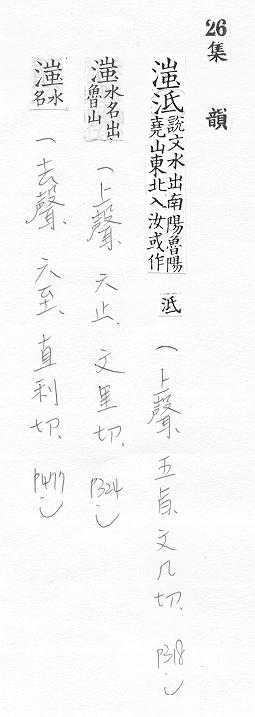 26 集韻
滍泜說文水出南陽魯陽堯山東北入汝或作泜(上聲.五旨.文几切.P318.)
滍水名出魯山(上聲.六止.文里切.P324)
滍水名(去聲.六至.直利切.P477)